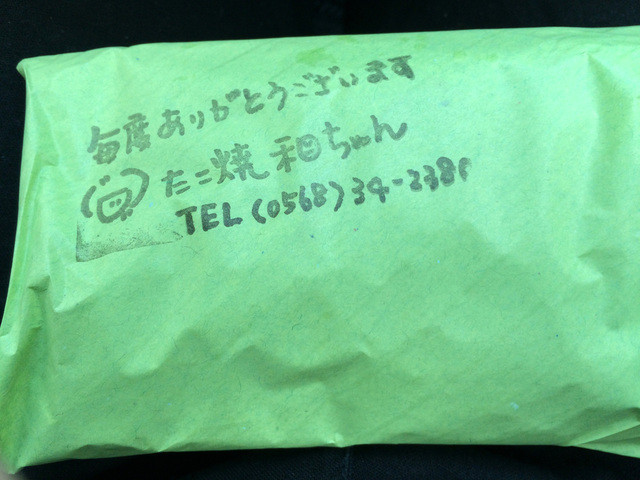 毎度ありがとうございます
たこ焼 和ちゃん
TEL (0568) 34-2381